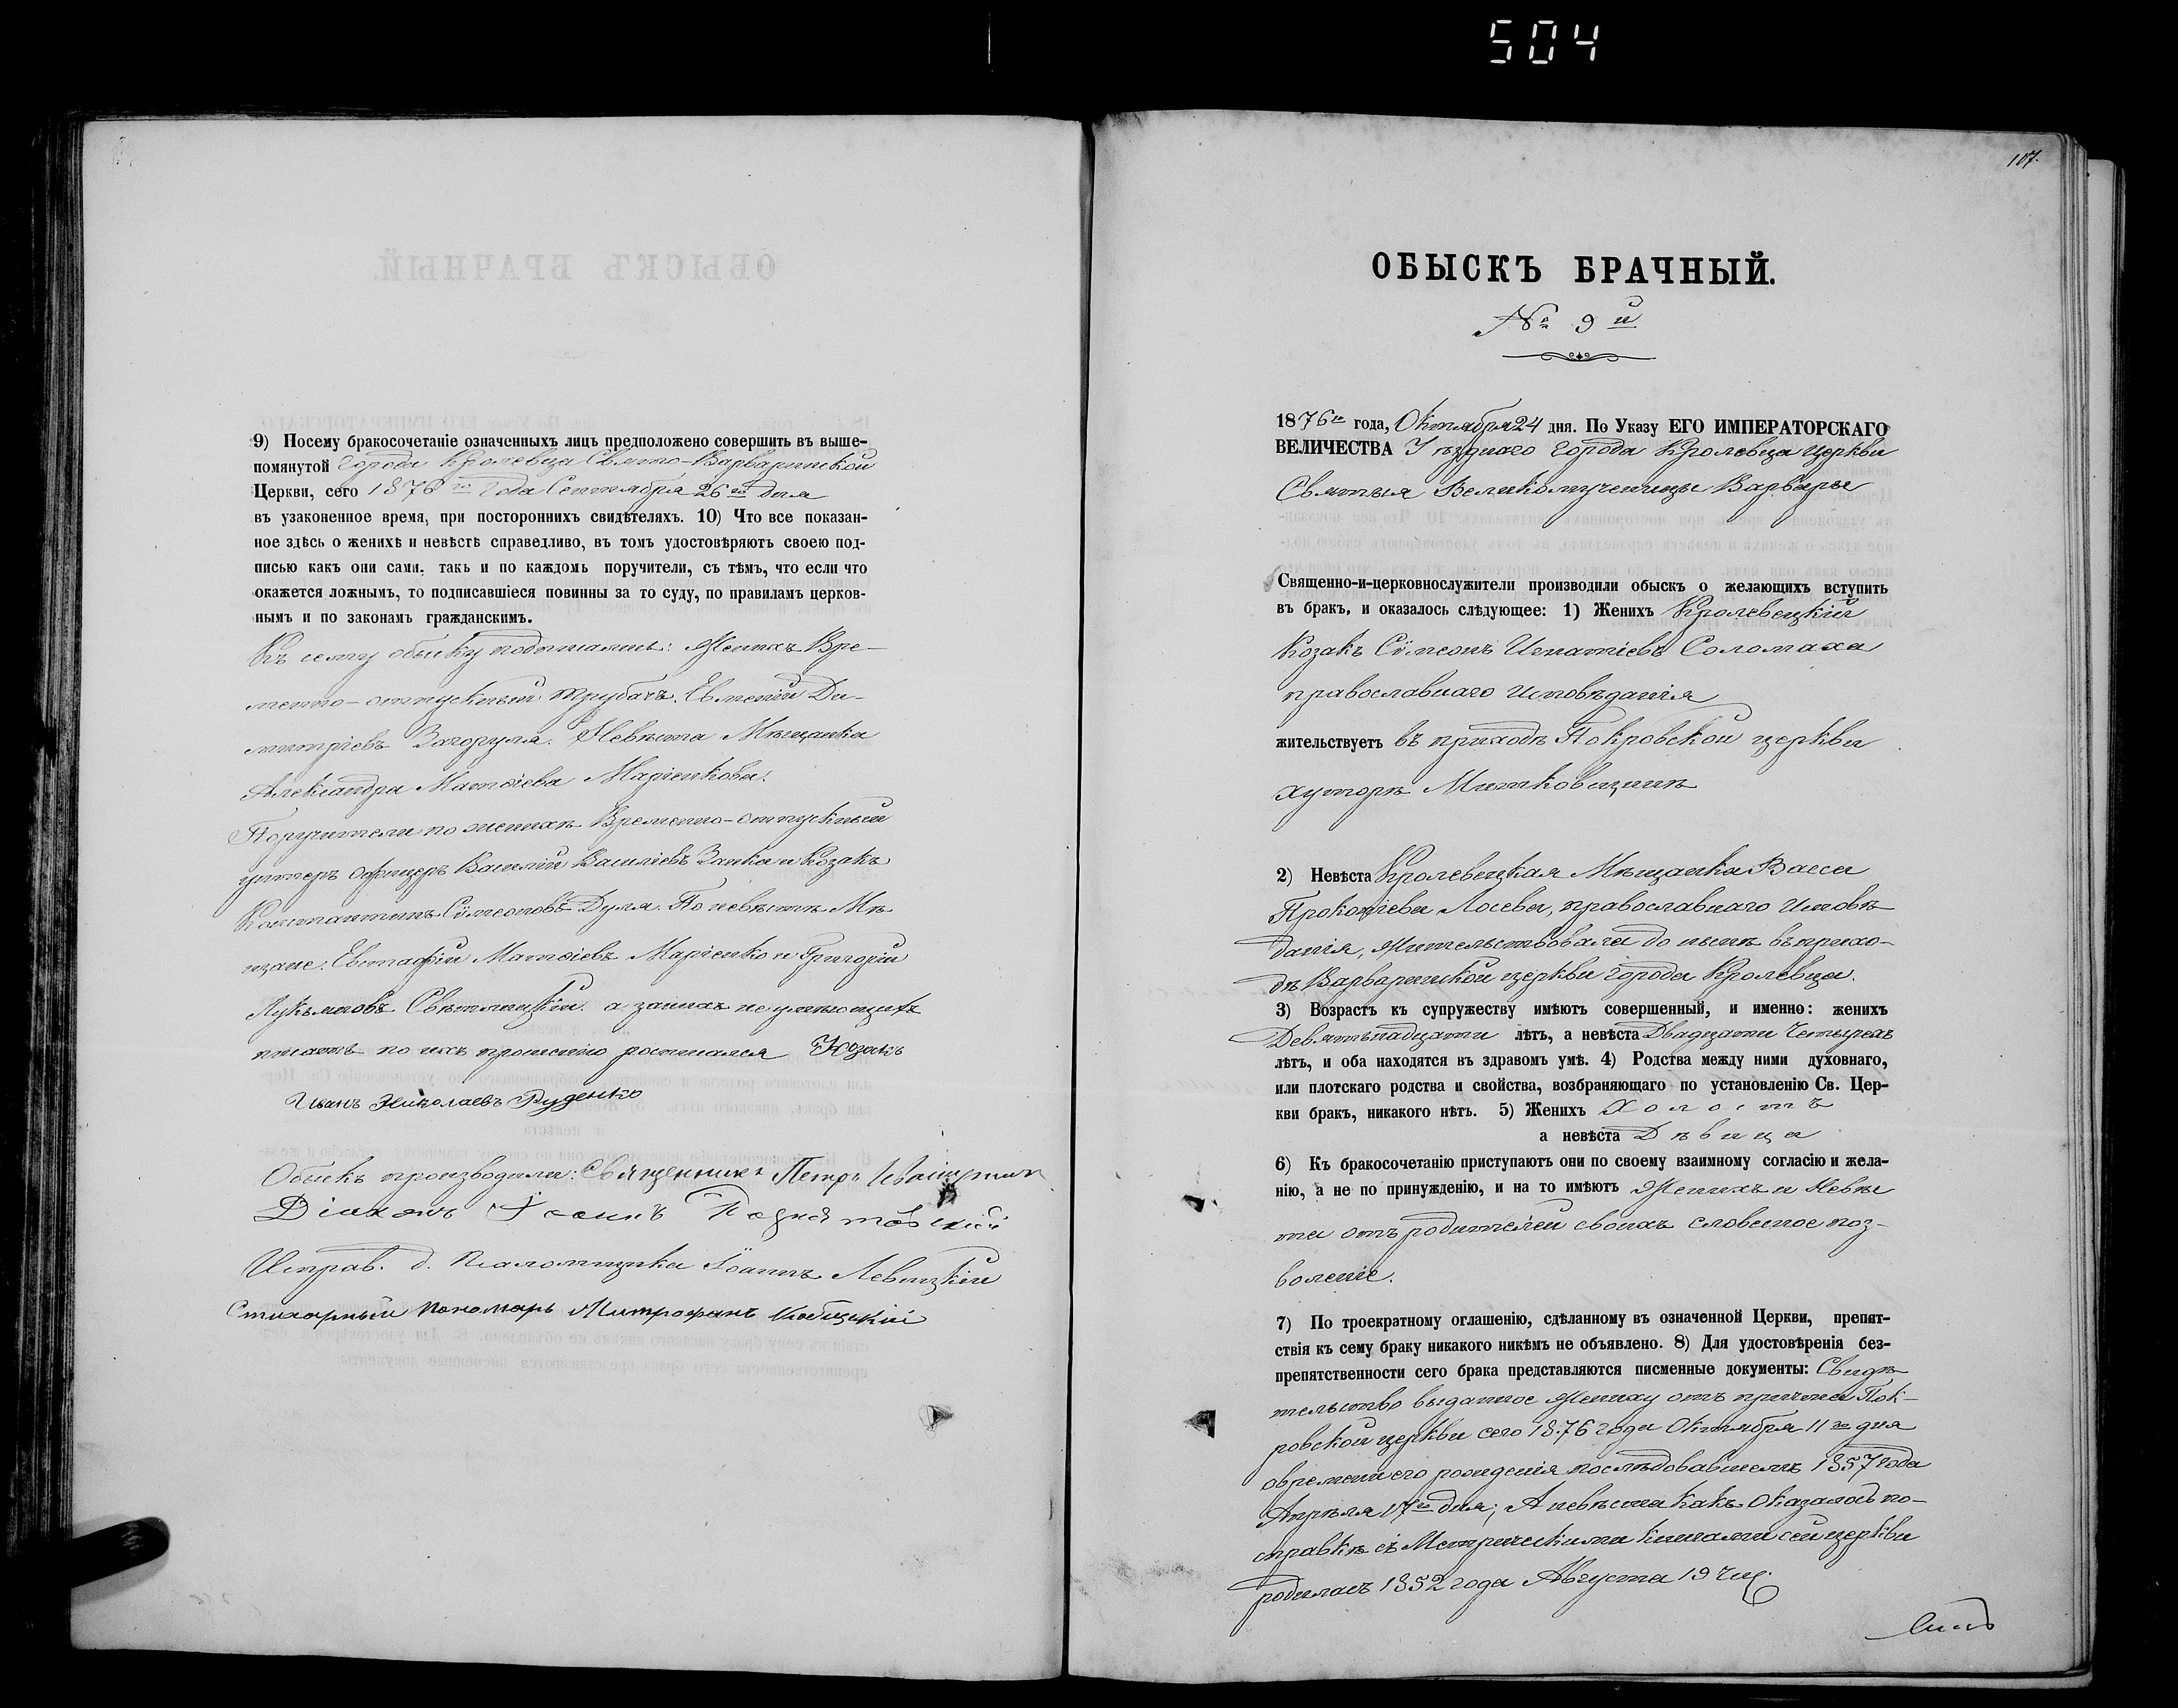 504
9) Посему бракосочетаніе означенныхъ лицъ предположено совершить въ выше-
помянутой города Кролевца Свято-Варваринской
Церкви, сего 1876го года Сентября 26го дня
въ узаконенное время, при постороннихъ свидѣтеляхъ. 10) Что все показан-
ное здѣсь о женихѣ и невѣстѣ справедливо, въ томъ удостовѣряютъ своею под-
писью какъ они сами, такъ и по каждомъ поручители, съ тѣмъ, что если что
окажется ложнымъ, то подписавшіеся повинны за то суду, по правиламъ церков-
нымъ и по законамъ гражданскимъ.
Къ сему обыску подписались: Женихъ Вре-
менно-отпускный трубачъ Евменій Ди-
митріевъ Загоруля. Невѣста Мѣщанка
Александра Матѳіева Марієнкова.
Поручители по женихѣ Временно-отпускный
унтеръ офицеръ Василій Василіевъ Заика и Козакъ
Константинъ Сѷмеоновъ Дуля. По невѣстѣ Мѣ-
щане: Евстафій Матѳіевъ Марієнко и Григорій
Лукьяновъ Свѣтлицкій. а за нихъ неумѣющихъ
писать по ихъ прошенію росписался Козакъ
Иванъ Николаевъ Руденко
Обыскъ производили: Священникъ Петръ
Діаконъ Іоаннъ
Исправ. д. Псаломщика Іоаннъ Левицкій
Стихарный пономарь Митрофанъ
107.
ОБЫСКЪ БРАЧНЫЙ.
№ 9й
1876го года, Октября 24 дня. По Указу ЕГО ИМПЕРАТОРСКАГО
ВЕЛИЧЕСТВА Уѣзднаго города Кролевца церкви
Святыя Великомученицы Варвары
Священно-и-церковнослужители производили обыскъ о желающихъ вступить
въ бракъ, и оказалось слѣдующее: 1) Женихъ Кролевецкій
Козакъ Сѷмеонъ Игнатіевъ Соломаха
православнаго исповѣданія
жительствуетъ въ приходѣ Покровской церкви
хуторѣ Митковщинѣ
2) Невѣста Кролевецкая Мѣщанка Васса
Прокопіева Лосева, православнаго исповѣ-
данія, жительствовала до нынѣ въ прихо-
дѣ Варваринской церкви города Кролевца.
3) Возрастъ къ супружеству имѣютъ совершенный, и именно: женихъ
Девятьнадцати лѣтъ, а невѣста Двадцати Четырехъ
лѣтъ, и оба находятся въ здравомъ умѣ. 4) Родства между ними духовнаго,
или плотскаго родства и свойства, возбраняющаго по установленію Св. Цер-
кви бракъ, никакого нѣтъ. 5) Женихъ Холостъ
а невѣста Дѣвица
6) Къ бракосочетанію приступаютъ они по своему взаимному согласію и жела-
нію, а не по принужденію, и на то имѣютъ Женихъ и Невѣс
та отъ родителей своихъ словесное поз-
воленіе.
7) По троекратному оглашенію, сдѣланному въ означенной Церкви, препят-
ствія къ сему браку никакого никѣмъ не объявлено. 8) Для удостовѣренія без-
препятственности сего брака представляются писменные документы: Свидѣ-
тельство выданное Жениху отъ причта Пок-
ровской церкви сего 1876 года Октября 11го дня
о времени его рожденія послѣдовавшемъ 1857 года
Апрѣля 17го дня; А невѣста какъ оказалось по-
справкѣ съ Метрическими книгами сей церкви
родилась 1852 года Августа 19 чис.